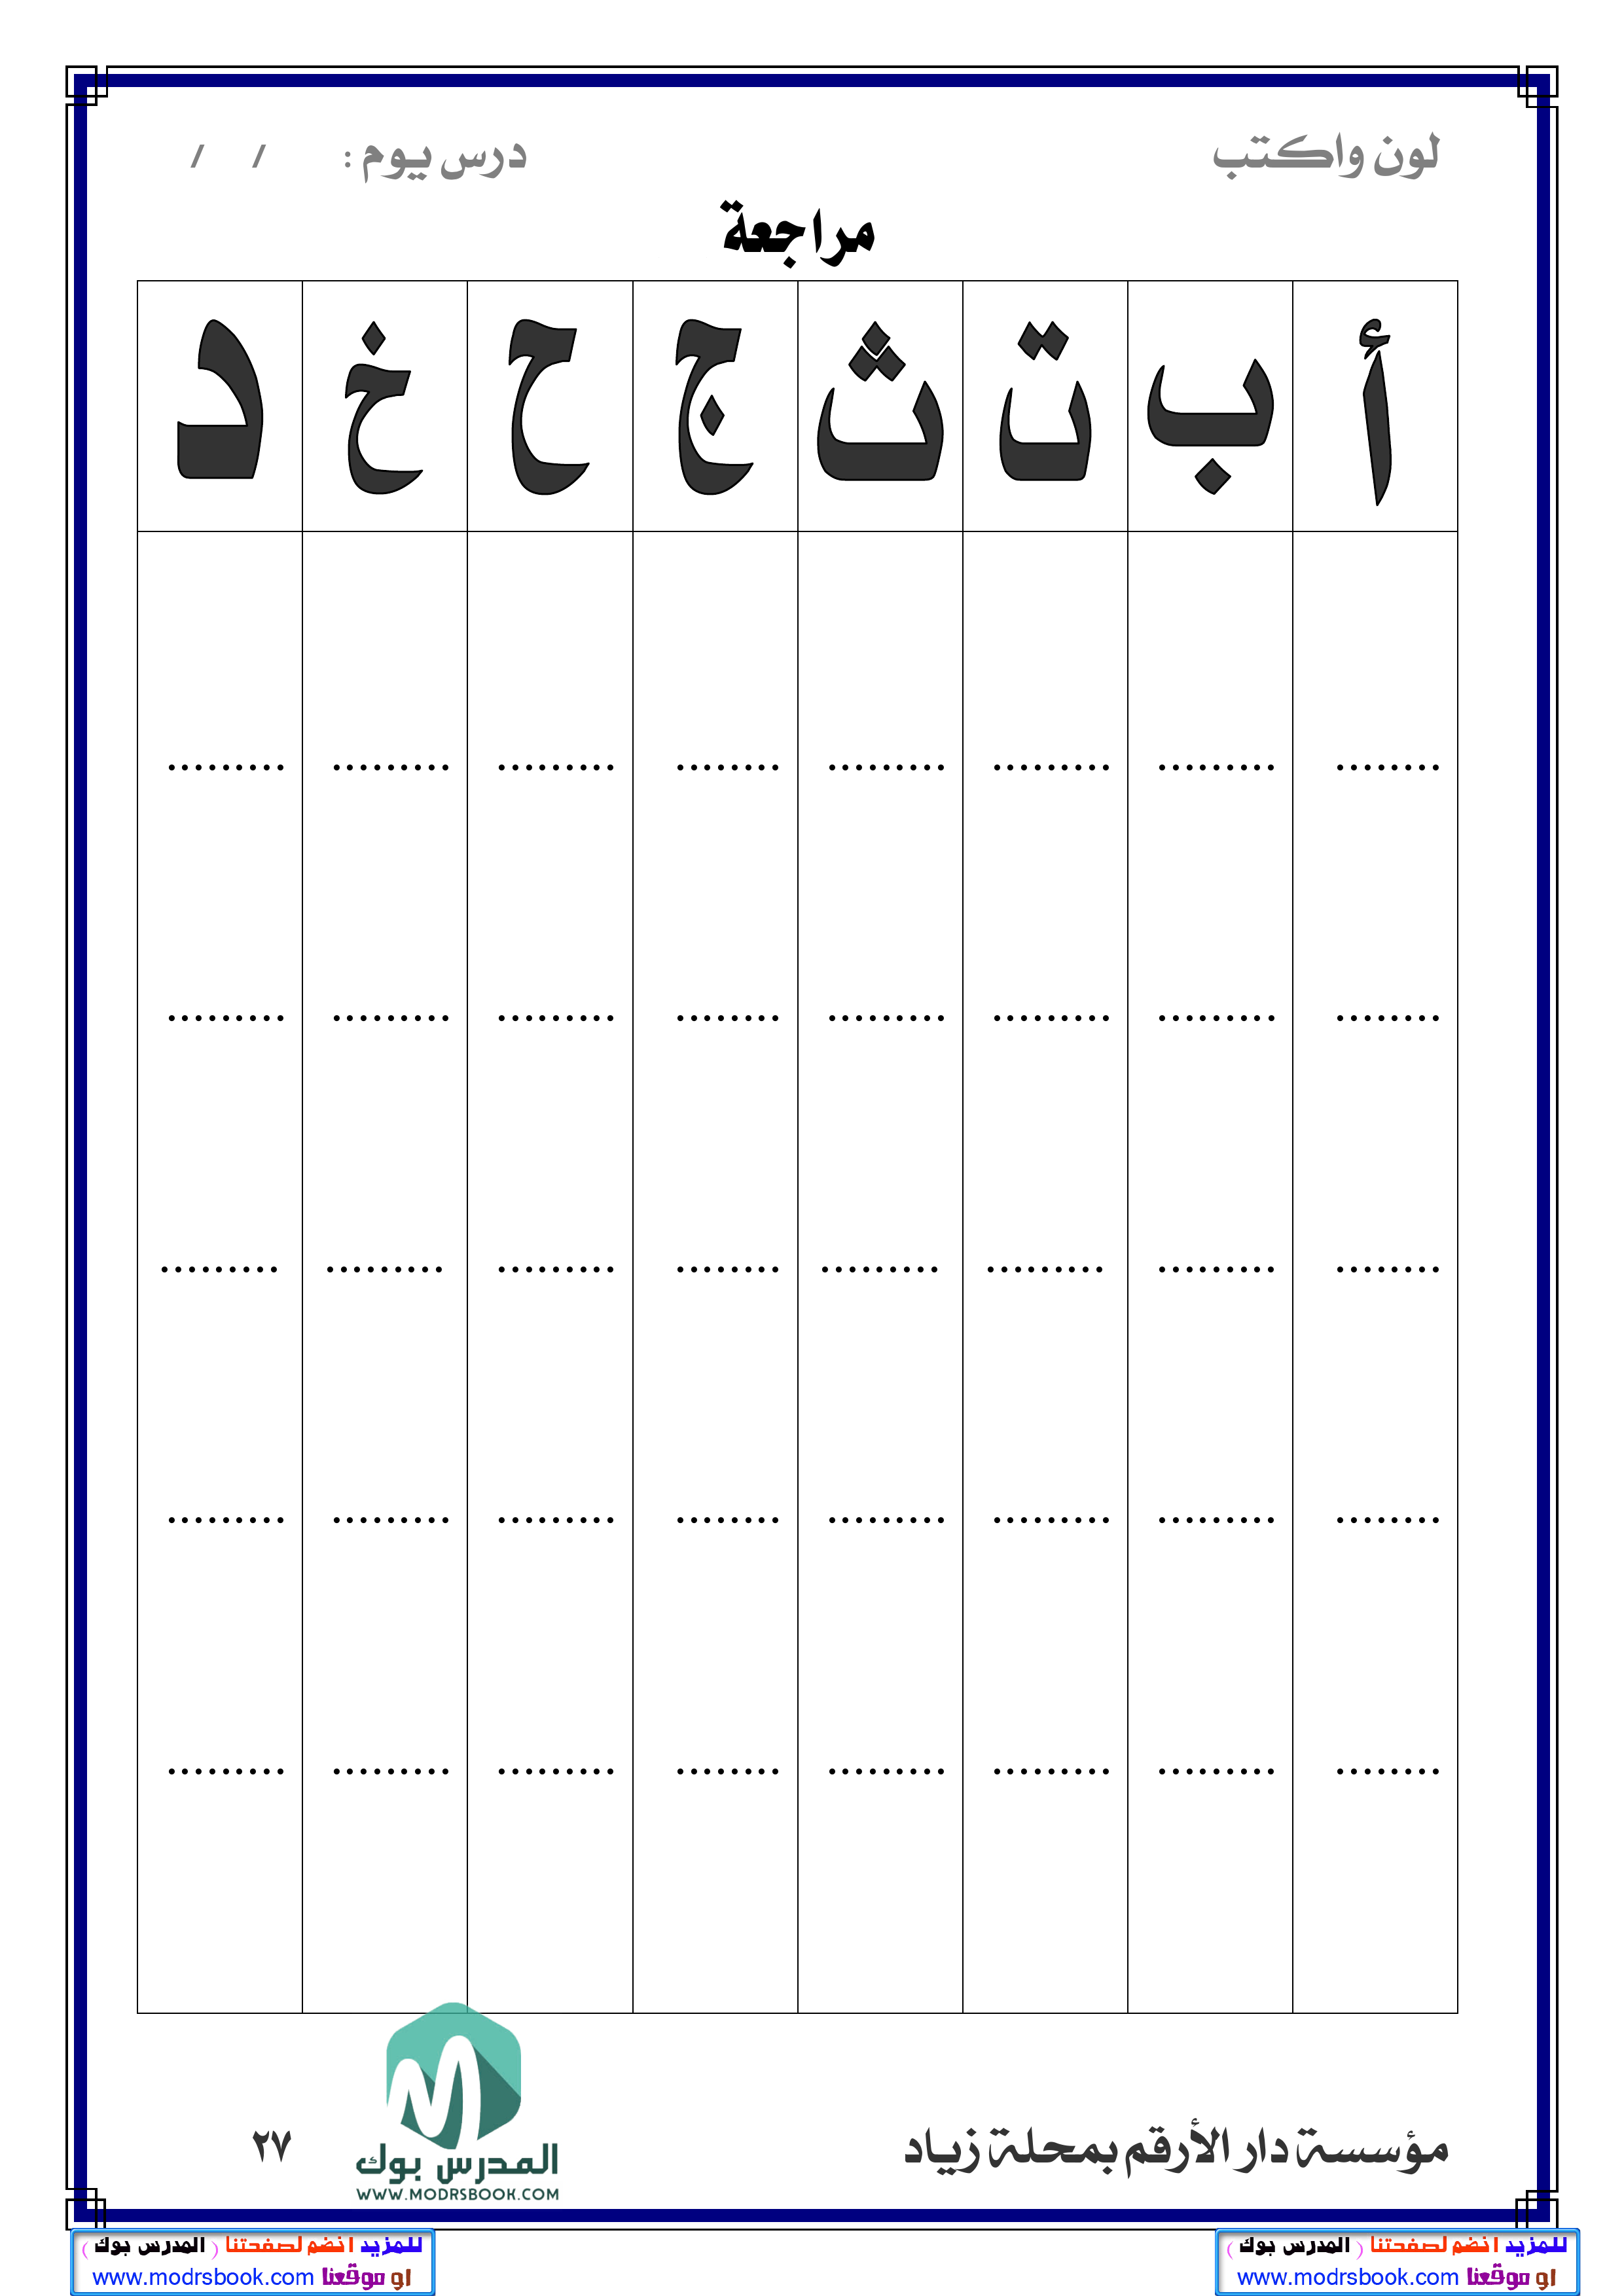 لون واكتب درس يوم : / /
مراجعة
أ ب ت ث ج ح خ د
........ ......... ......... ......... ........ ......... ......... .........
........ ......... ......... ......... ........ ......... ......... .........
........ ......... ......... ......... ........ ......... ......... .........
........ ......... ......... ......... ........ ......... ......... .........
........ ......... ......... ......... ........ ......... ......... .........
مؤسسة دار الأرقم بمحلة زياد ٢٧
المدرس بوك
WWW.MODRSBOOK.COM
للمزيد انضم لصفحتنا ( المدرس بوك )
او موقعنا www.modrsbook.com
للمزيد انضم لصفحتنا ( المدرس بوك )
او موقعنا www.modrsbook.com